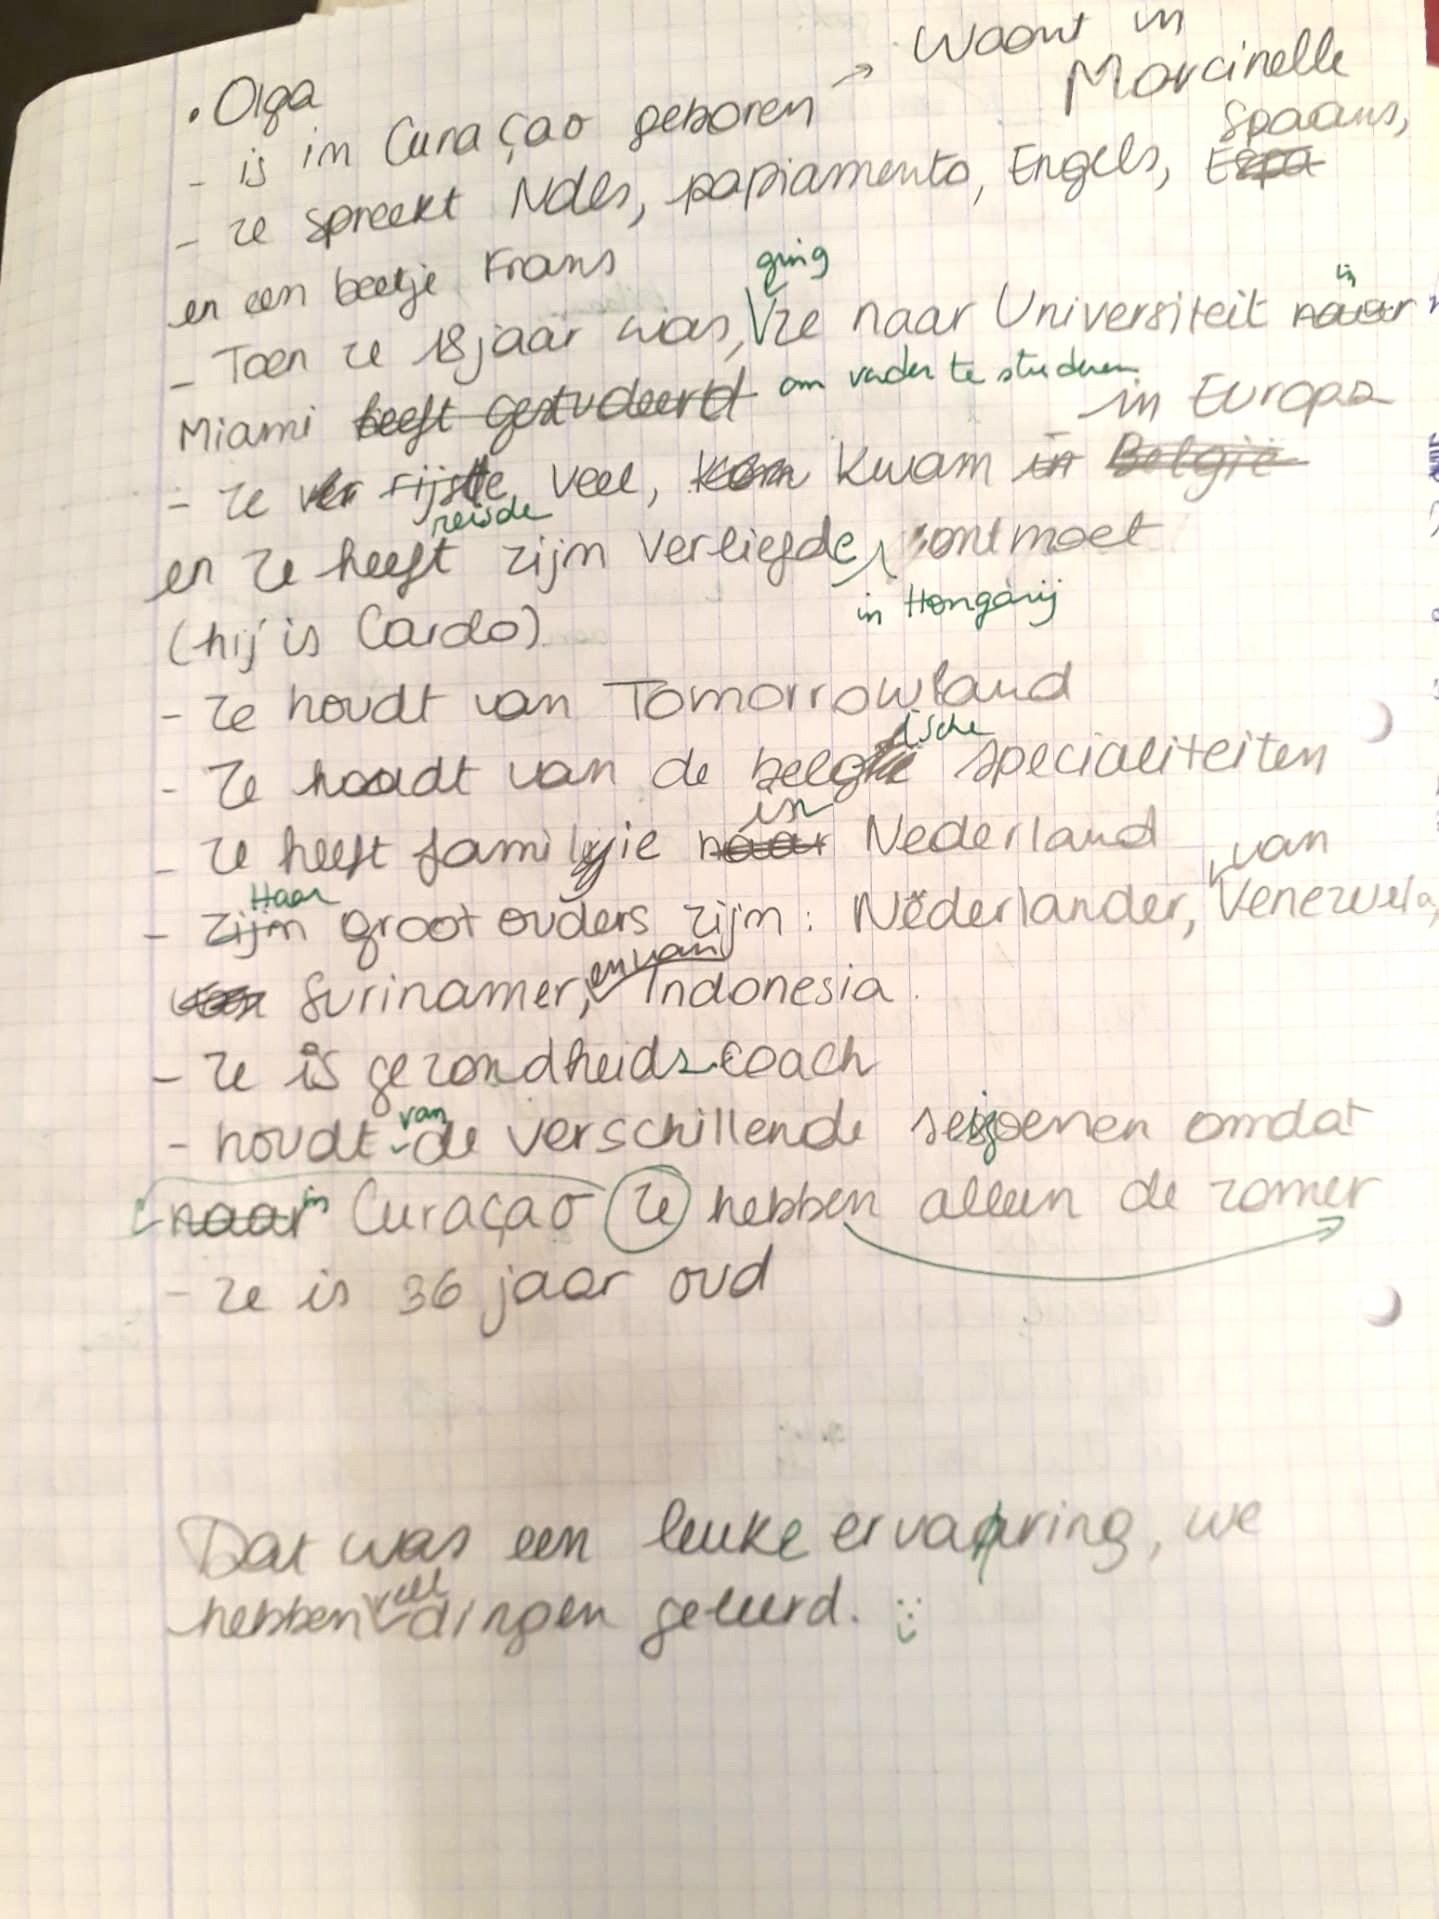 → Woont in
Marcinelle
• Olga
- is in Curaçao geboren
Spaans,
- ze spreekt Ndls, papiamento, Engels, Espa
en een beetje Frans
ging in
- Toen ze 18 jaar was, ze naar Universiteit naar
Miami heeft gestudeerd om verder te studeren
in Europa
- ze ver rijste veel, kom kwam in België
reisde
en ze heeft zijn verliefde, ontmoet
in Hongarij
(hij is Cardo)
- ze houdt van Tomorrowland
ische
- Ze houdt van de belgie specialiteiten
in
- ze heeft familyie naar Nederland
van
Haar
- zijn groot ouders zijn: Nederlander, Venezuela,
en van
van Surinamer, Indonesia.
- ze is gezondheids-coach
van
- houdt de verschillende seizoenen omdat
in
naar Curaçao ze hebben alleen de zomer
- ze is 36 jaar oud
Dat was een leuke ervaring, we
veel
hebben dingen geleerd. :)